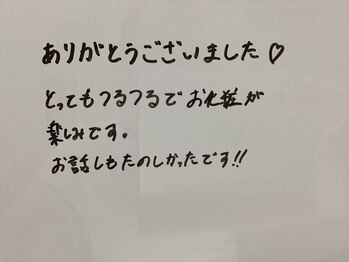 ありがとうございました♡
とってもつるつるでお化粧が
楽しみです。
お話しもたのしかったです!!